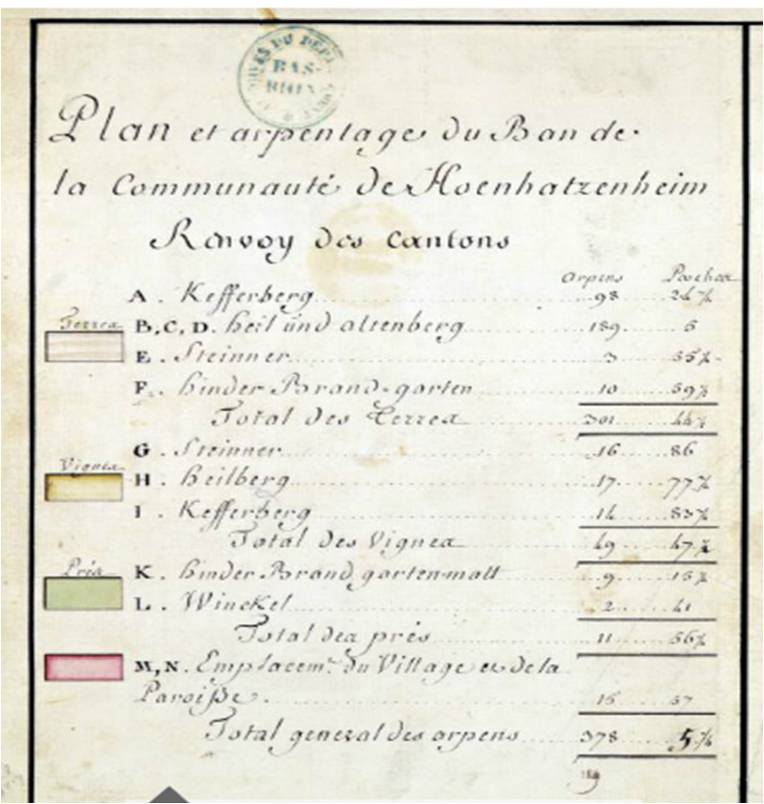 ARCHIVES DU DÉPT
BAS-
RHIN
Plan et arpentage du Ban de
la Communauté de Hoenhatzenheim
Renvoy des Cantons
Arpens Perches
A. Kefferberg 98 24½
Terres B, C, D. heil und altenberg 189 5
E. Steinner 3 55½
F. hinder Brand-garten 10 59½
Total des Terres 301 44½
G. Steinner 16 86
Vignes H. heilberg 17
I. Kefferberg 14
Total des Vignes 49 47½
Prés K. hinder Brand garten matt 9 15½
L. Winckel 2 41
Total des prés 11 56½
M, N. Emplacem.t du Village et de la
Paroiße. 15 57
Total general des arpens 378 5½